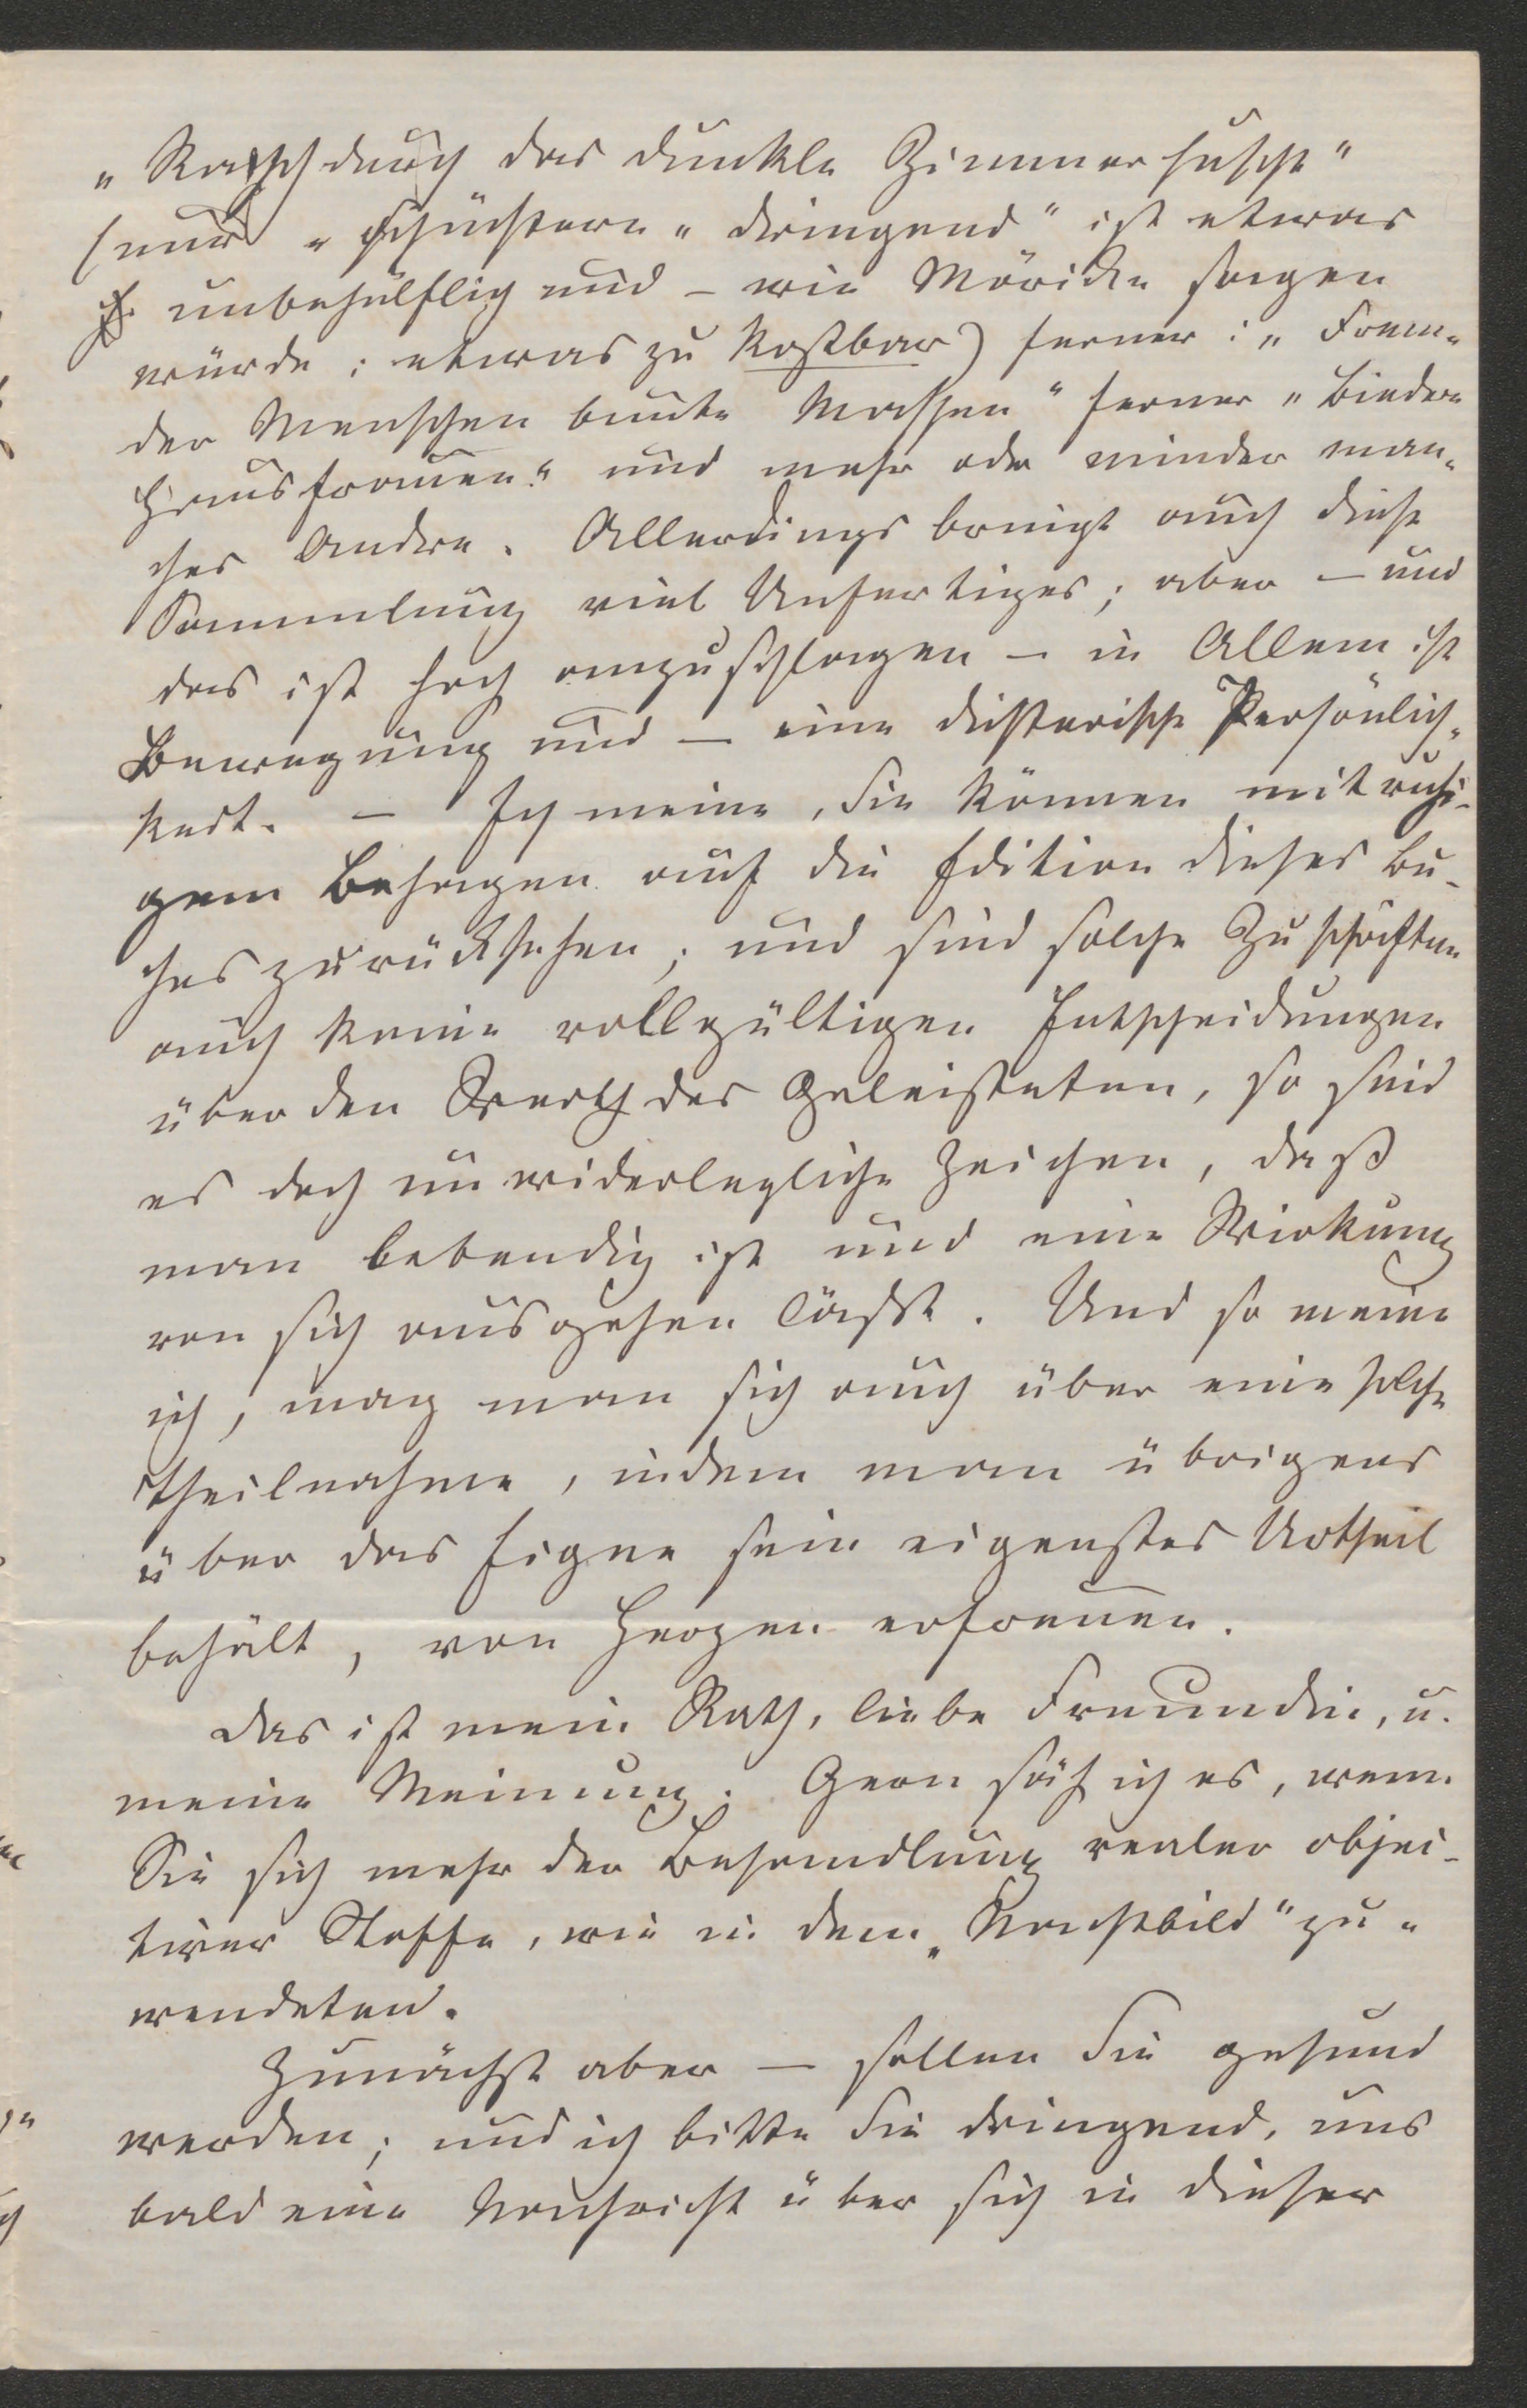 „Rasch durch das dunkle Zimmer huscht"
(nur „schüchtern-dringend" ist etwas
unbehülflich und – wie Mörike sagen
würde: etwas zu kostbar) ferner: „Frem-
der Menschen bunte Massen" ferner „Biedre
Hausfrauen" und mehr oder minder man-
ches Andre. Allerdings bringt auch diese
Sammlung viel Unfertiges; aber – und
das ist hoch anzuschlagen – in Allem ist
Bewegung und – eine dichterische Persönlich-
keit. – Ich meine, Sie können mit ruhi-
gem Behagen auf die Edition dieses Bu-
ches zurücksehen; und sind solche Zuschriften
auch keine vollgültigen Entscheidungen
über den Werth des Geleisteten, so sind
es doch unwiderlegliche Zeichen, daß
man lebendig ist und eine Wirkung
von sich ausgehen läßt. Und so meine
ich, mag man sich auch über eine solche
Theilnahme, indem man übrigens
über das Eigne sein eigenstes Urtheil
behält, von Herzen erfreuen.
Das ist mein Rath, liebe Freundin, u.
meine Meinung. Gern säh ich es, wenn
Sie sich mehr der Behandlung realer objec-
tiver Stoffe, wie in dem „Nachtbild" zu-
wendeten.
Zunächst aber – sollen Sie gesund
werden; und ich bitte Sie dringend, uns
bald eine Nachricht über sich in dieser